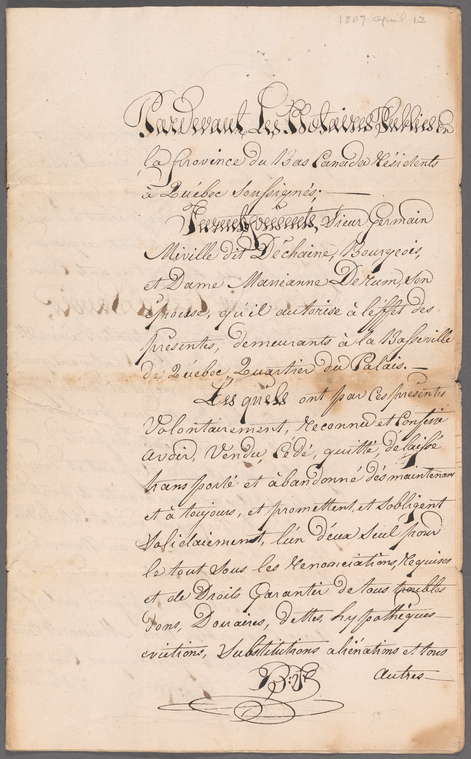 1807 april 13
Pardevant Les Notaires Publics de
la Province du Bas Canada Résidents
à Québec soussignés;
Furent Présents, Sieur Germain
Miville dit Déchaine, Bourgeois,
et Dame Marieanne Derum, son
Epouse, qu'il autorise à l'effet des
présentes, demeurants à la Basseville
de Québec Quartier du Palais.
Lesquels ont par ces présentes
Volontairement, Reconnu et Confessé
avoir, Vendu, Cédé, quitté, délaissé
transporté et abandonné dés maintenant
et à toujours, et promettent, et s'obligent
Solidairement, l'un deux seul pour
le tout sous les Renonciations Requises
et de Droits Garantir de tous troubles
Dons, Douaires, dettes, hypothèques
evictions, Substitutions aliénations et tous
autres